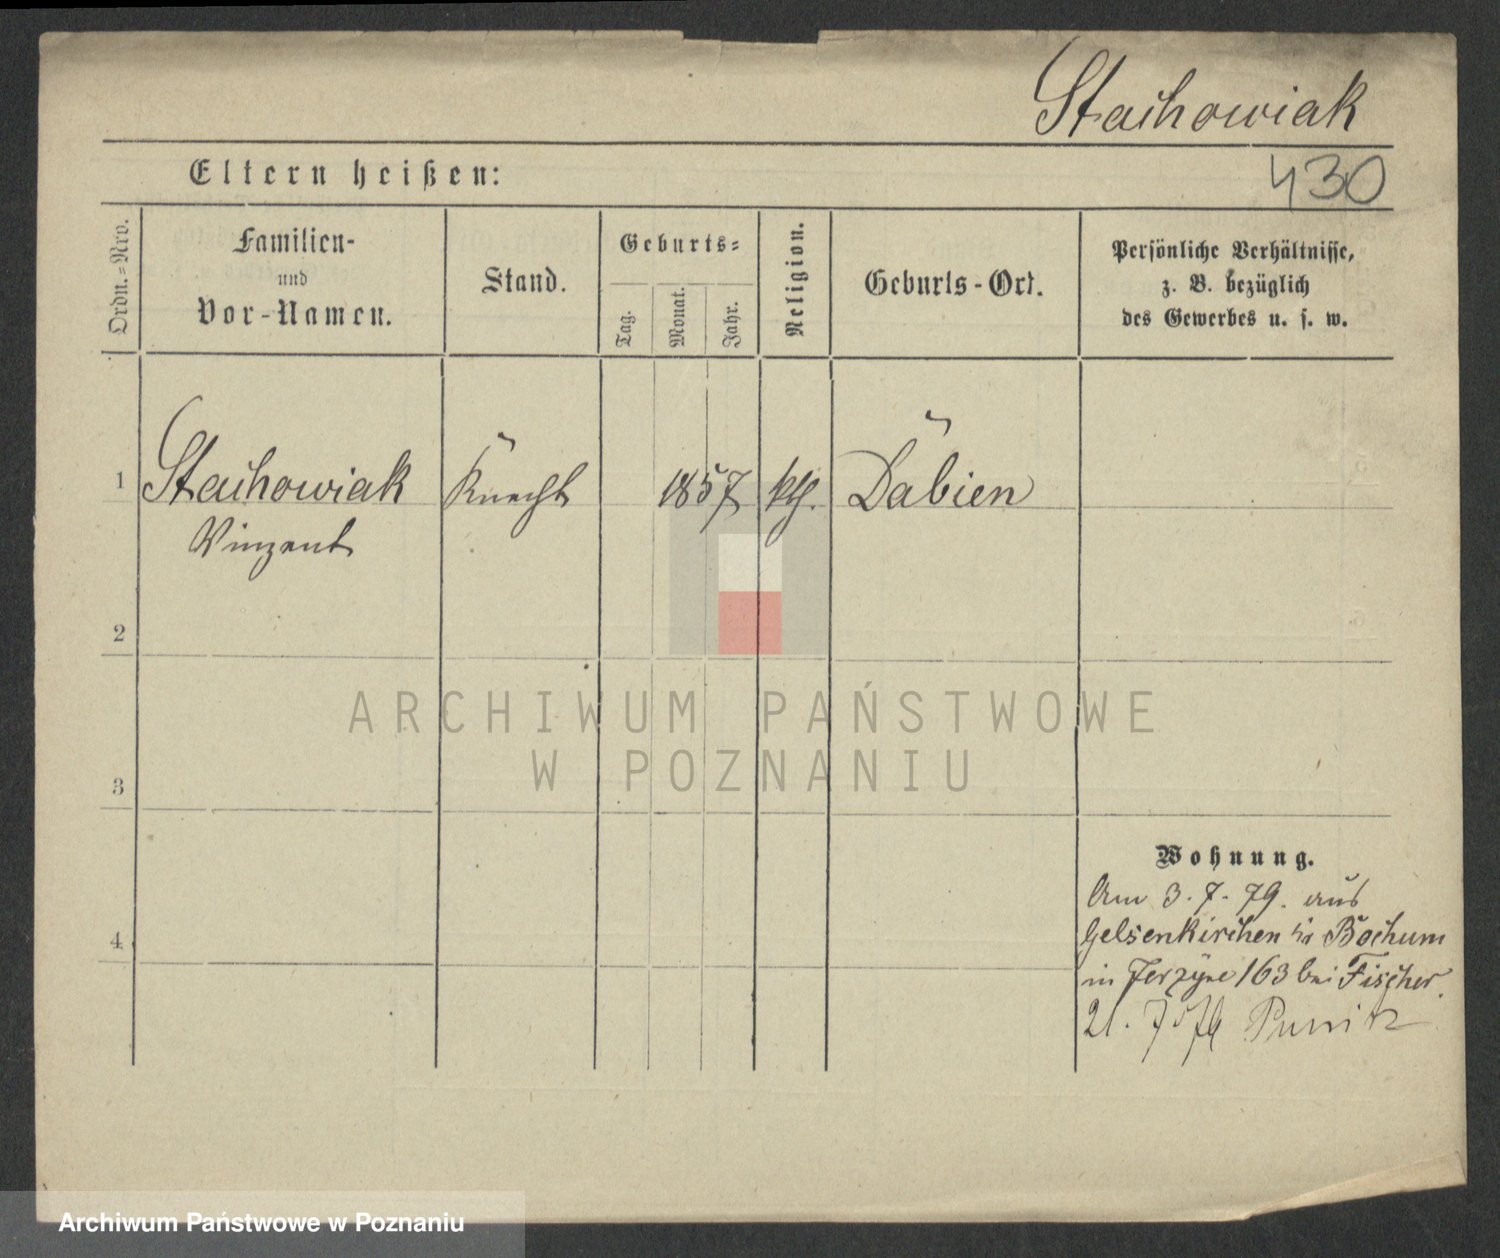 Stachowiak
430
Eltern heißen:
Ordn.=Nro.
Familien-
und
Vor-Namen.
Stand.
Geburts=
Tag.
Monat.
Jahr.
Religion.
Geburts-Ort.
Persönliche Verhältnisse,
z. B. bezüglich
des Gewerbes u. s. w.
1
Stachowiak
Vinzent
Knecht
1857
kth.
Dabien
2
ARCHIWUM PAŃSTWOWE
W POZNANIU
3
Wohnung.
Am 3. 7. 79. aus
Gelsenkirchen Bochum
in Jerzyce 163 bei Fischer.
21. 7
4
Archiwum Państwowe w Poznaniu